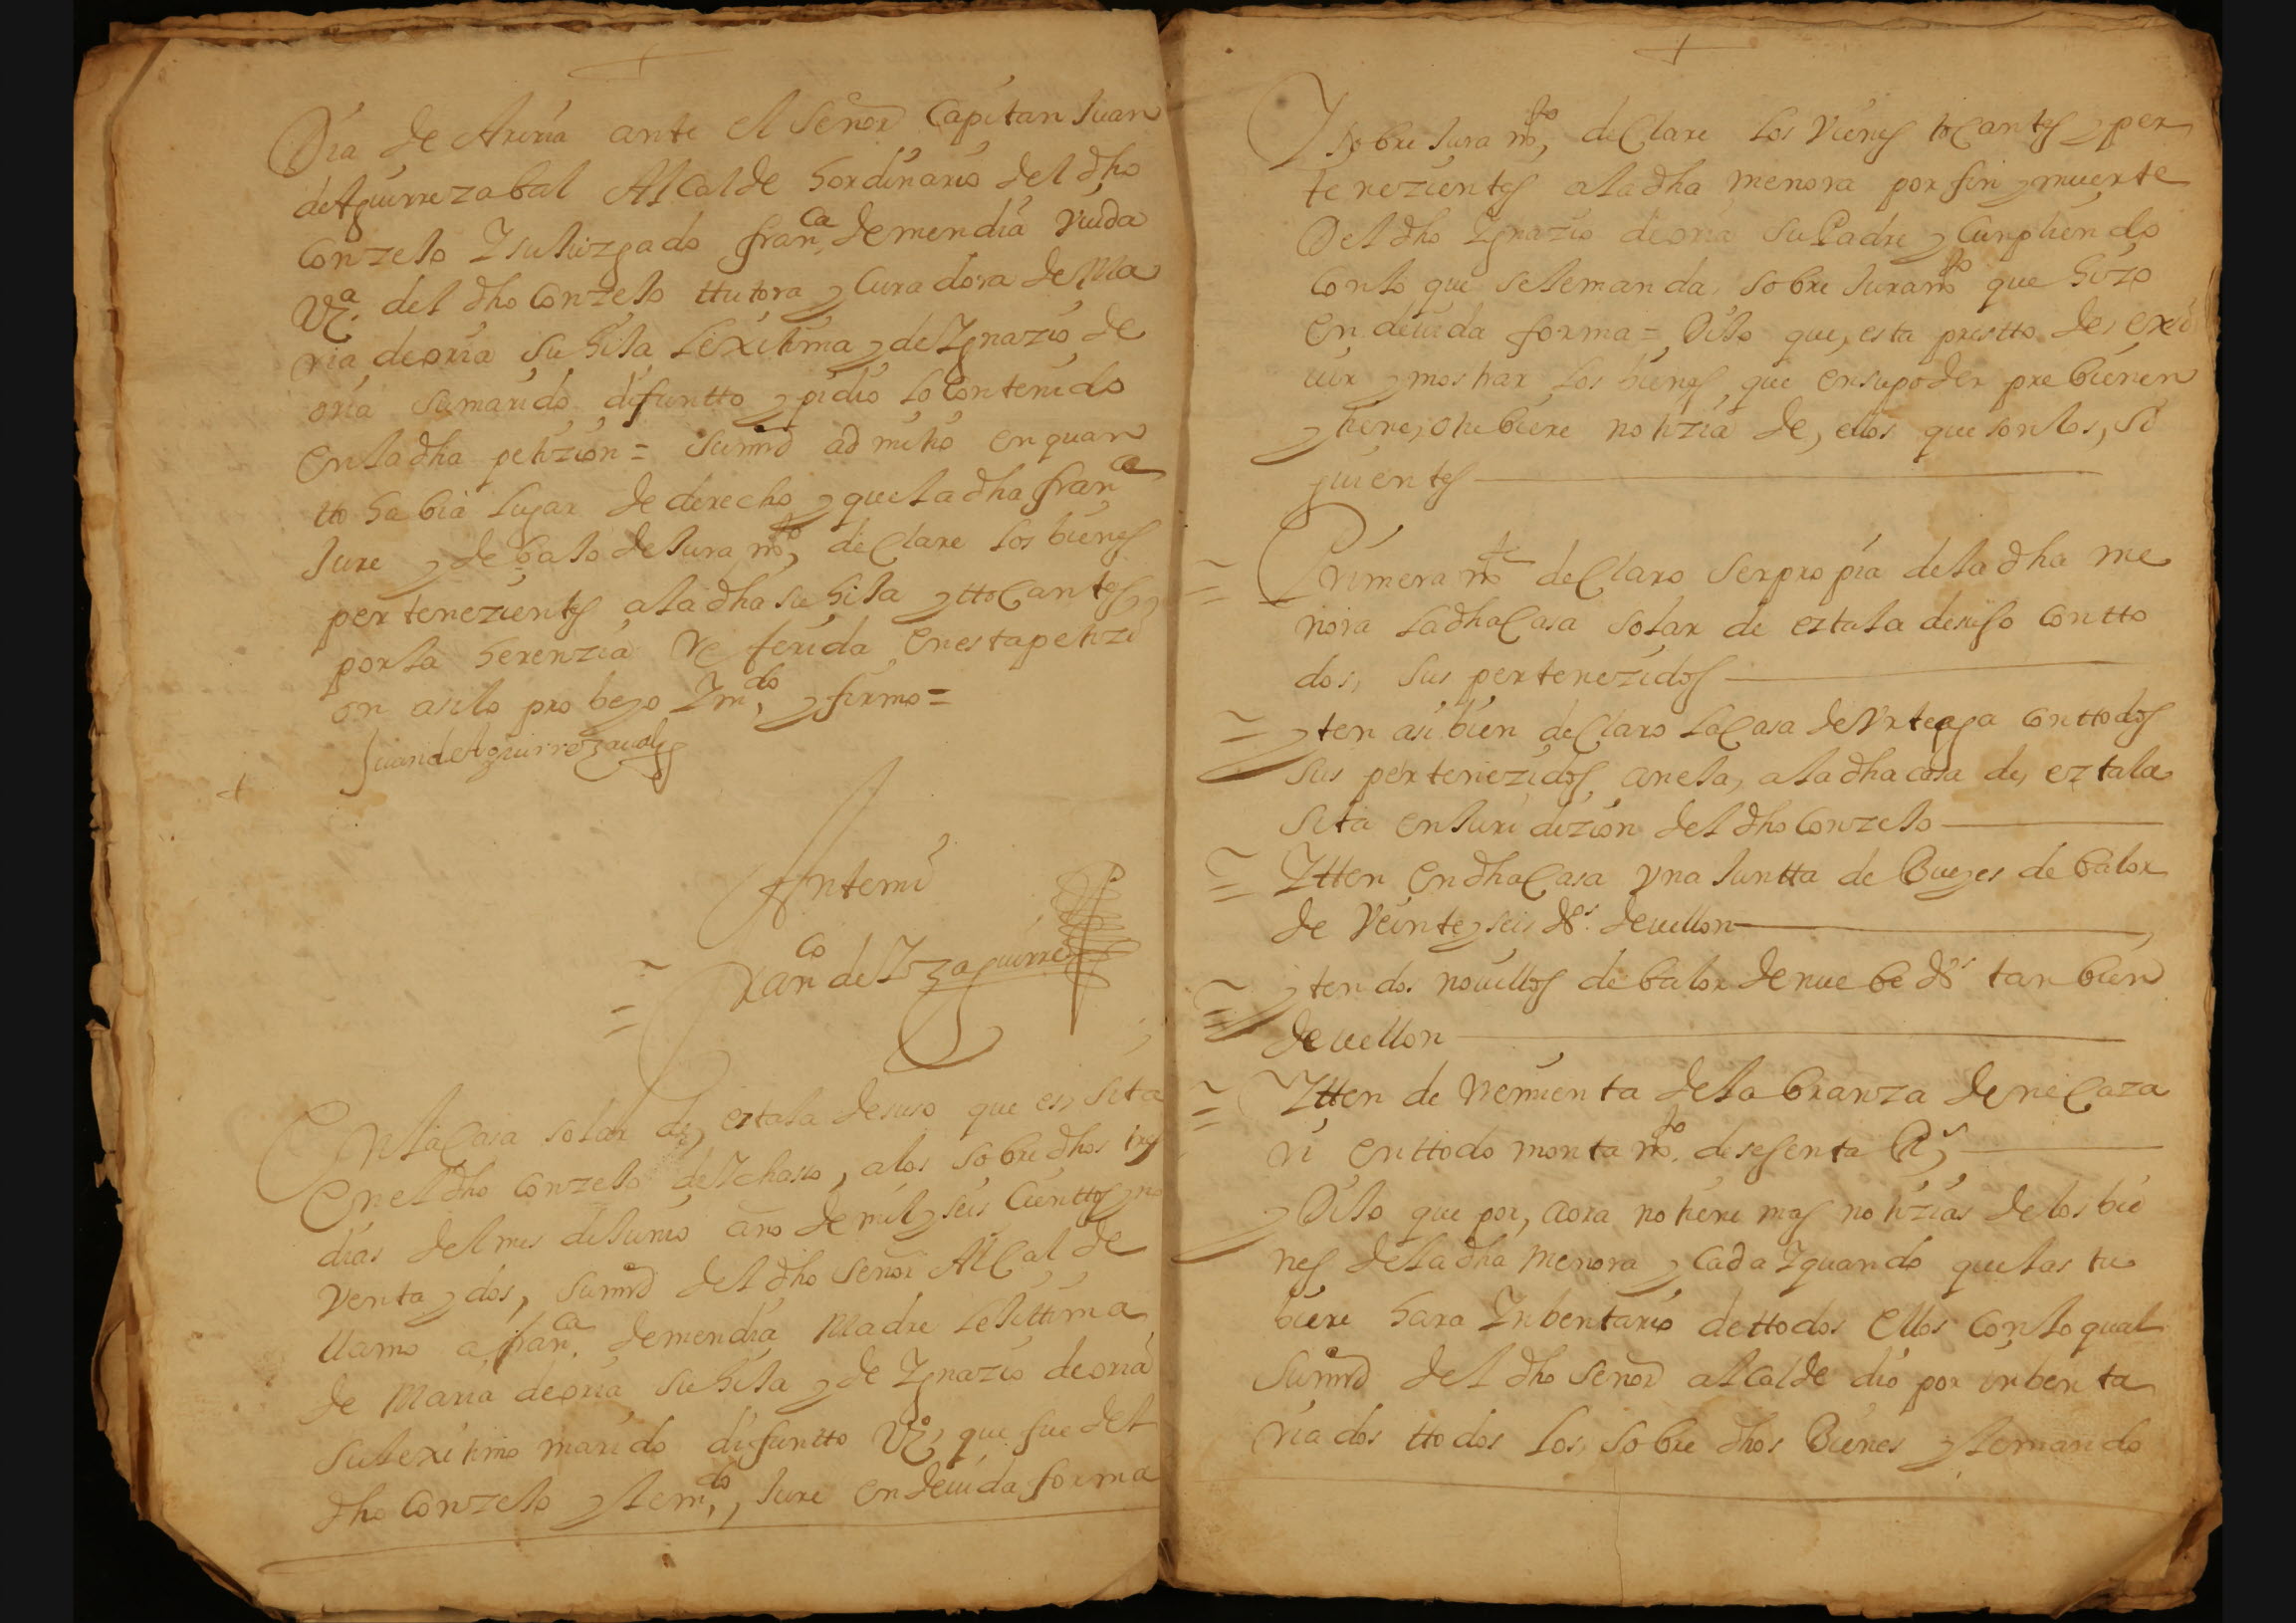 Dia de Areria ante el Señor Capitan Juan
de Aguirrezabal Alcalde hordinario del dho
Conzejo Y su Juzgado franca de mendia Viuda
Vza. del dho Conzejo ttutora y Curadora de Ma
ria de oria su hija lexitima y de Ygnazio de
oria su marido difuntto y pidio lo Contenido
en la dha petizion = su mrd admitio en quan
tto habia lugar de derecho y que la dha franca
Jure y debajo de Juramto, declare los bienes
pertenezientes a la dha su hija y ttocantes
por la herenzia referida en esta petizi
on asi lo probeyo Ymdo, y firmo =
Juan de Aguirrezaual
Ante mi
Franco de Yzaguirre
En la Casa solar de eztala de suso que es, sita
en el dho conzejo de Ychaso, a los sobre dhos
dias del mes de Junio año de mil y seis Cienttos y no
venta y dos, su mrd del dho señor Alcalde
llamo a franca. de mendia Madre lejittima
de Maria de oria su hija y de Ygnazio de oria
su lexitimo marido difuntto Vzo, que fue del
dho Conzejo y le mdo, Jure en deuida forma
Y sobre Juramto, declare los Vienes tocantes y per
tenezientes a la dha menora por fin y muerte
Del dho Ygnazio de oria su Padre y Cunpliendo
con lo que se le manda, sobre Juramto que hizo
en deuida forma = Dijo que, esta prestto de exi
uir y mostrar los bienes, que en su poder prebienen
y tiene, o tubiere notizia de, ellos que son los, si
guientes
Primeramte declaro ser propia de la dha me
nora la dha Casa solar de eztala de suso con tto
dos, sus pertenezidos
yten asi bien declaro la Casa de Vrteaga con ttodos
sus pertenezidos, aneja, a la dha casa de, eztala
sita en Juridizion del dho Conzejo
Ytten en dha Casa Vna Juntta de Bueyes de balor
de Veinte y seis ds. de uellon
yten dos nouillos de balor de nuebe ds tan bien
de uellon
Ytten de Remienta de labranza de
ri en ttodo montamto. de sesenta Rs
y Dijo que por, aora no tiene mas notizias de los bie
nes de la dha Menora y Cada Y quando que las tu
biere hara Ynbentario de ttodos ellos Con lo qual
su mrd del dho señor alcalde dio por inbenta
riados ttodos los, sobre dhos Bienes y le mando